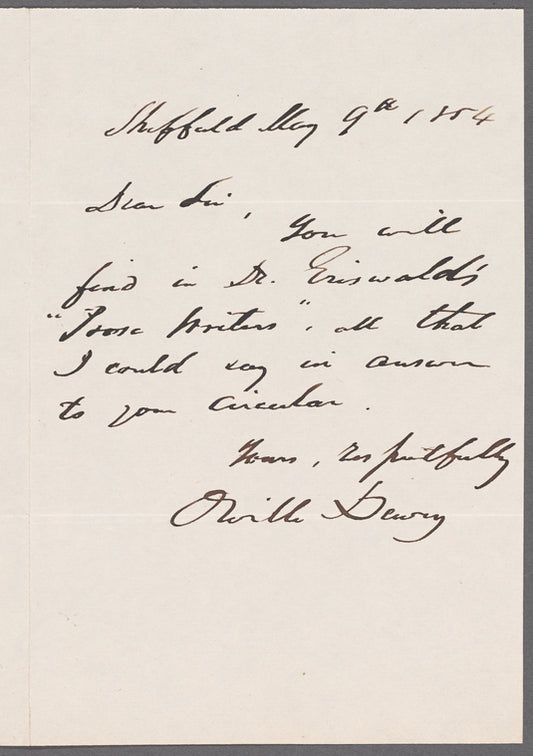 Sheffield May 9th 1854
Dear Sir,
You will
find in Dr. Griswald's
"Prose Writers", all that
I could say in answer
to your Circular.
Yours, respectfully
Orville Dewey